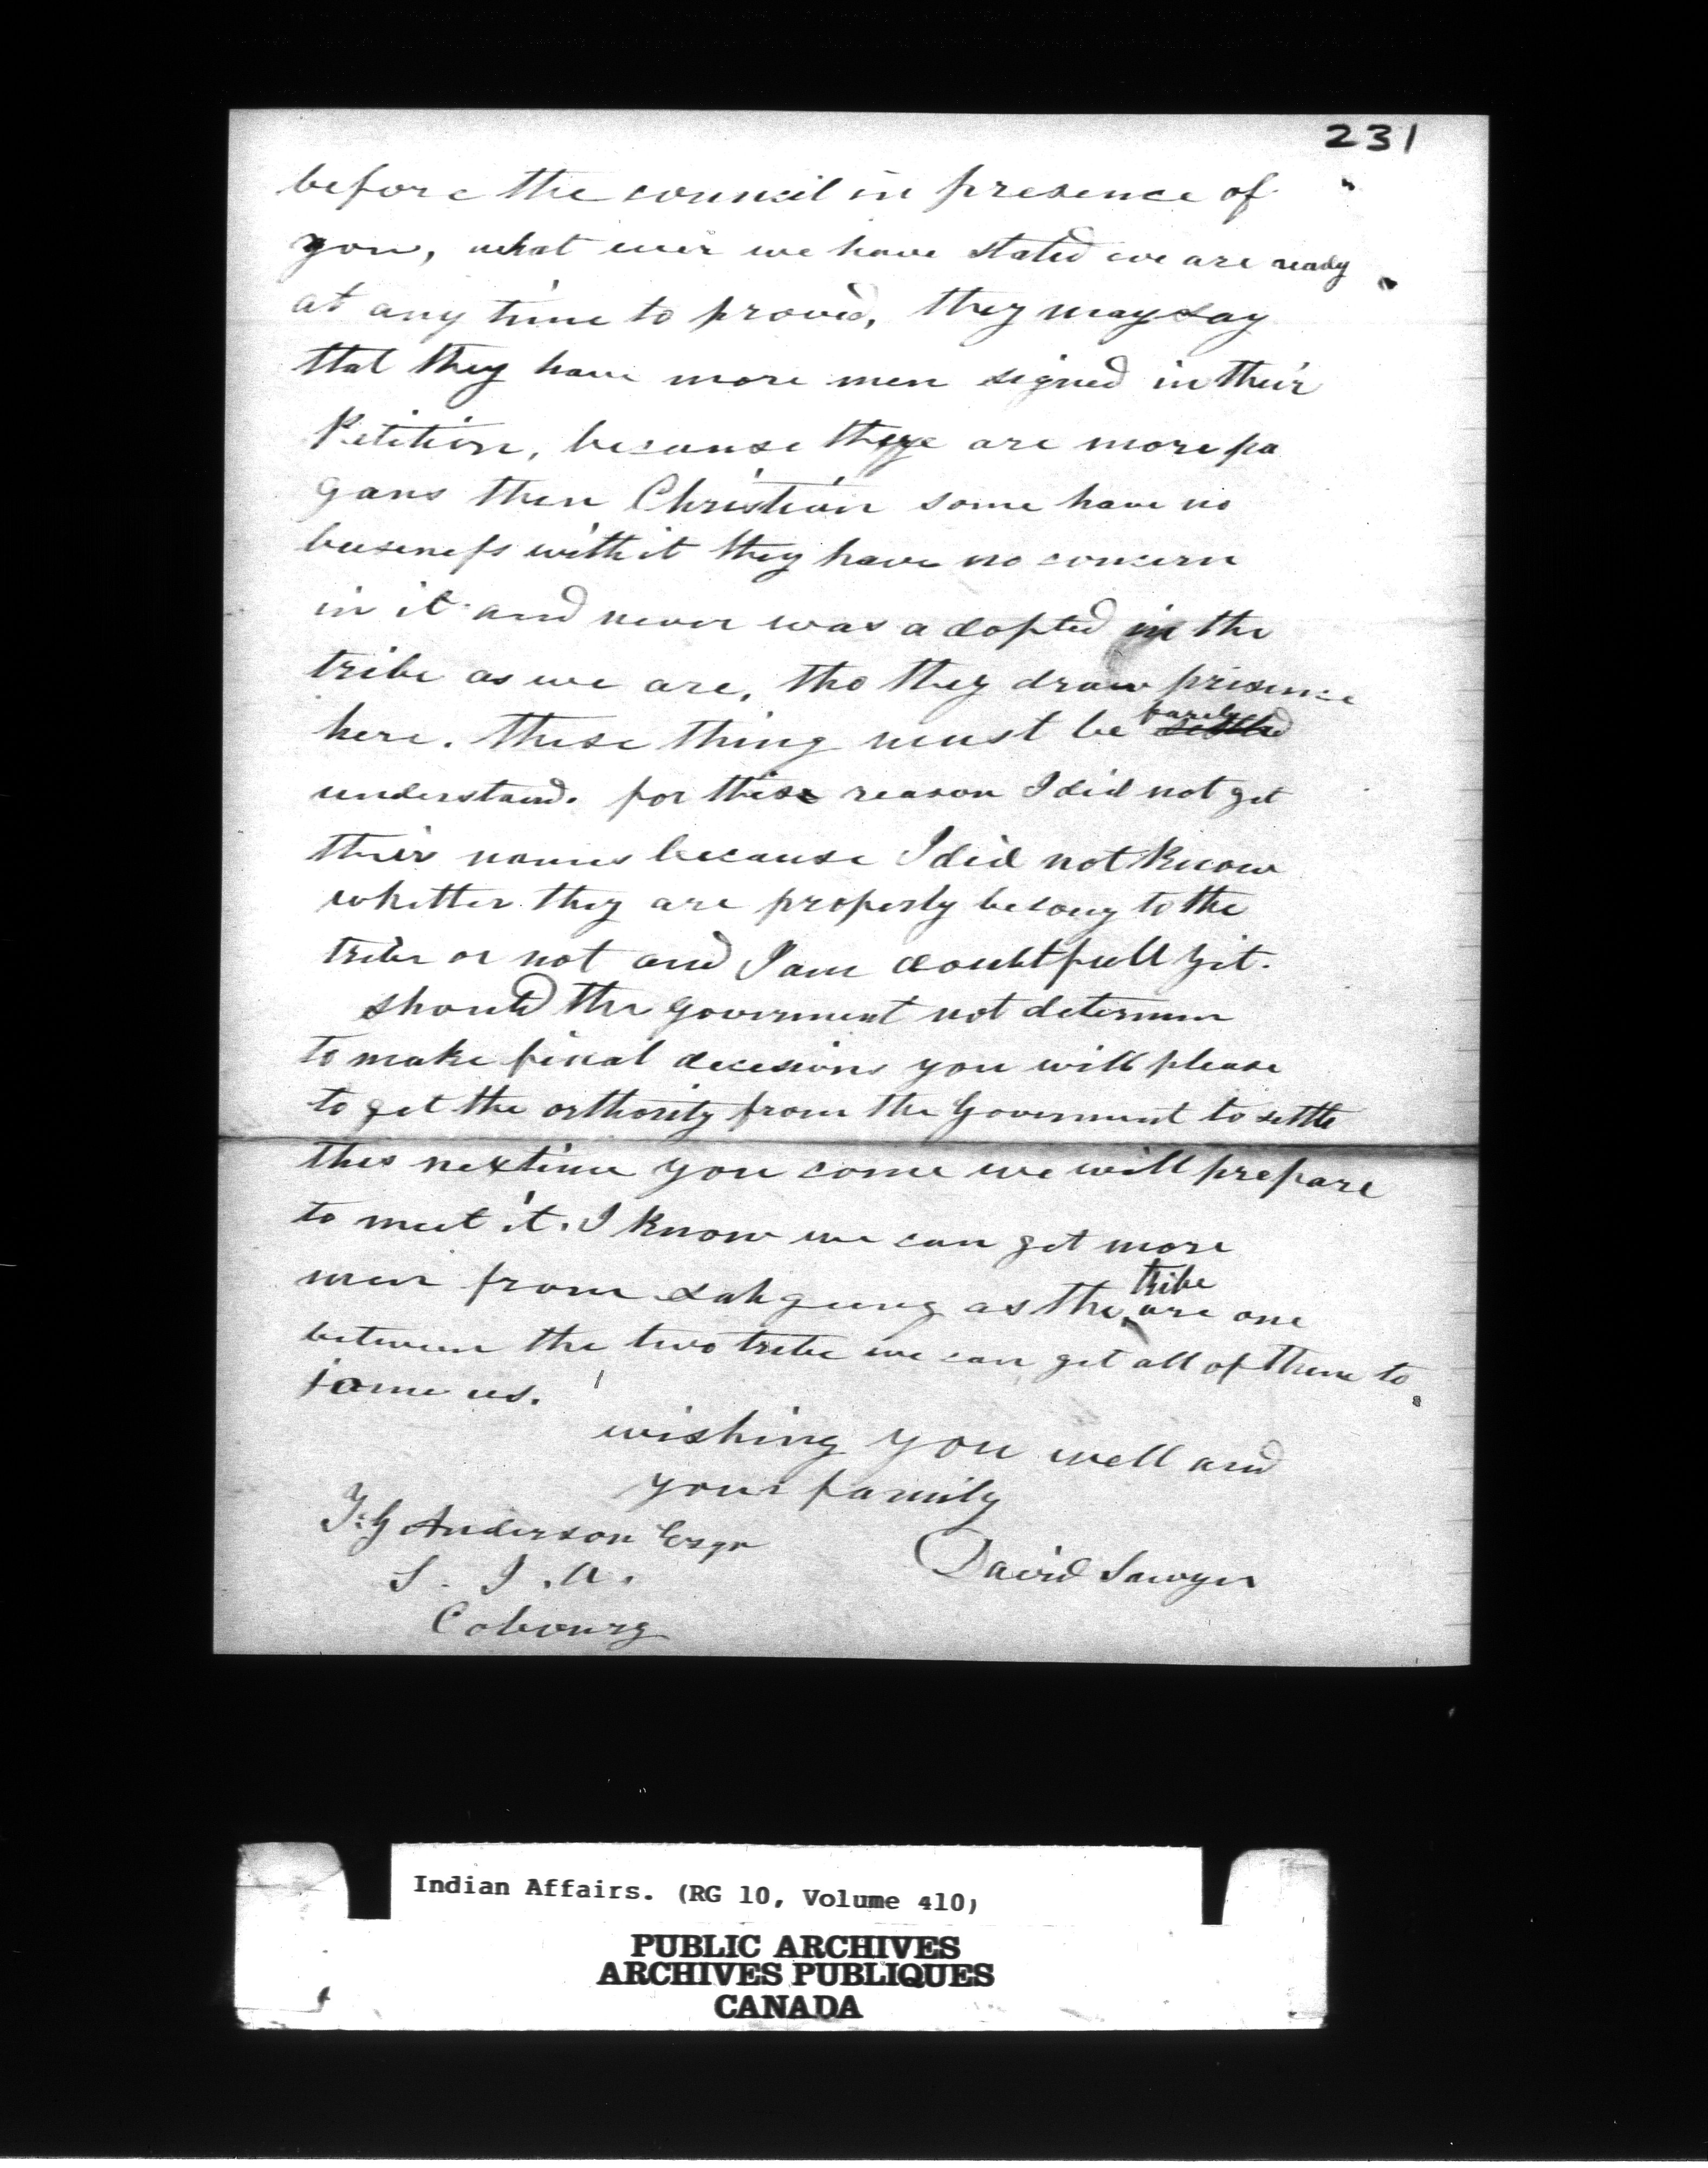 231
before the council in presence of
you, what ever we have stated we are ready
at any time to proved, they may say
that they have more men signed in their
Petition, because there are more pa
gans then Christian some have no
buseness with it they have no concern
in it and never was adopted in the
tribe as we are, tho they draw prisence
here. These thing must be farely settled
understand. for this reason I did not get
their names because I did not know
whetter they are properly belong to the
tribe or not and I am doubtfull yit.
should the goverment not determin
to make final decesions you will please
to get the orthority from the Goverment to settle
this nextime you come we will prepare
to meet it. I know we can get more
tribe
men from Sahgeeng as the are one
between the two tribe we can get all of them to
jome us.
wishing you well and
your family
T. G Anderson Esqr
David Sawyer
S. I. A.
Cobourg
Indian Affairs. (RG 10, Volume 410)
PUBLIC ARCHIVES
ARCHIVES PUBLIQUES
CANADA